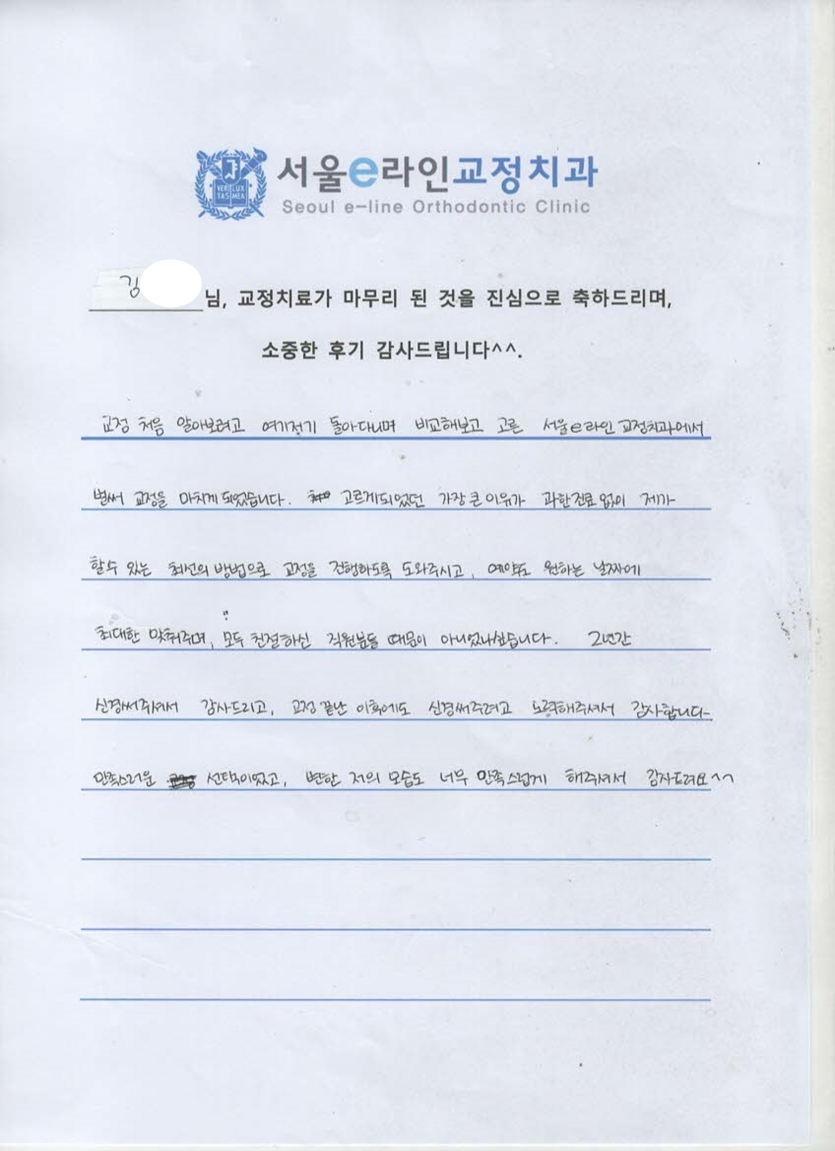 서울e라인교정치과
VERI LUX TAS MEA
Seoul e-line Orthodontic Clinic
김 님, 교정치료가 마무리 된 것을 진심으로 축하드리며,
소중한 후기 감사드립니다^^.
교정 처음 알아보려고 여기저기 돌아다니며 비교해보고 고른 서울e라인 교정치과에서
벌써 교정을 마치게 되었습니다. 고르게되었던 가장 큰 이유가 과한진료 없이 제가
할수 있는 최선의 방법으로 교정을 진행하도록 도와주시고, 예약도 원하는 날짜에
최대한 맞춰주며, 모두 친절하신 직원분들 때문이 아니었나싶습니다. 2년간
신경써주셔서 감사드리고, 교정 끝난 이후에도 신경써주려고 노력해주셔서 감사합니다
만족스러운 선택이었고, 변한 저의 모습도 너무 만족스럽게 해주셔서 감사드려요^^